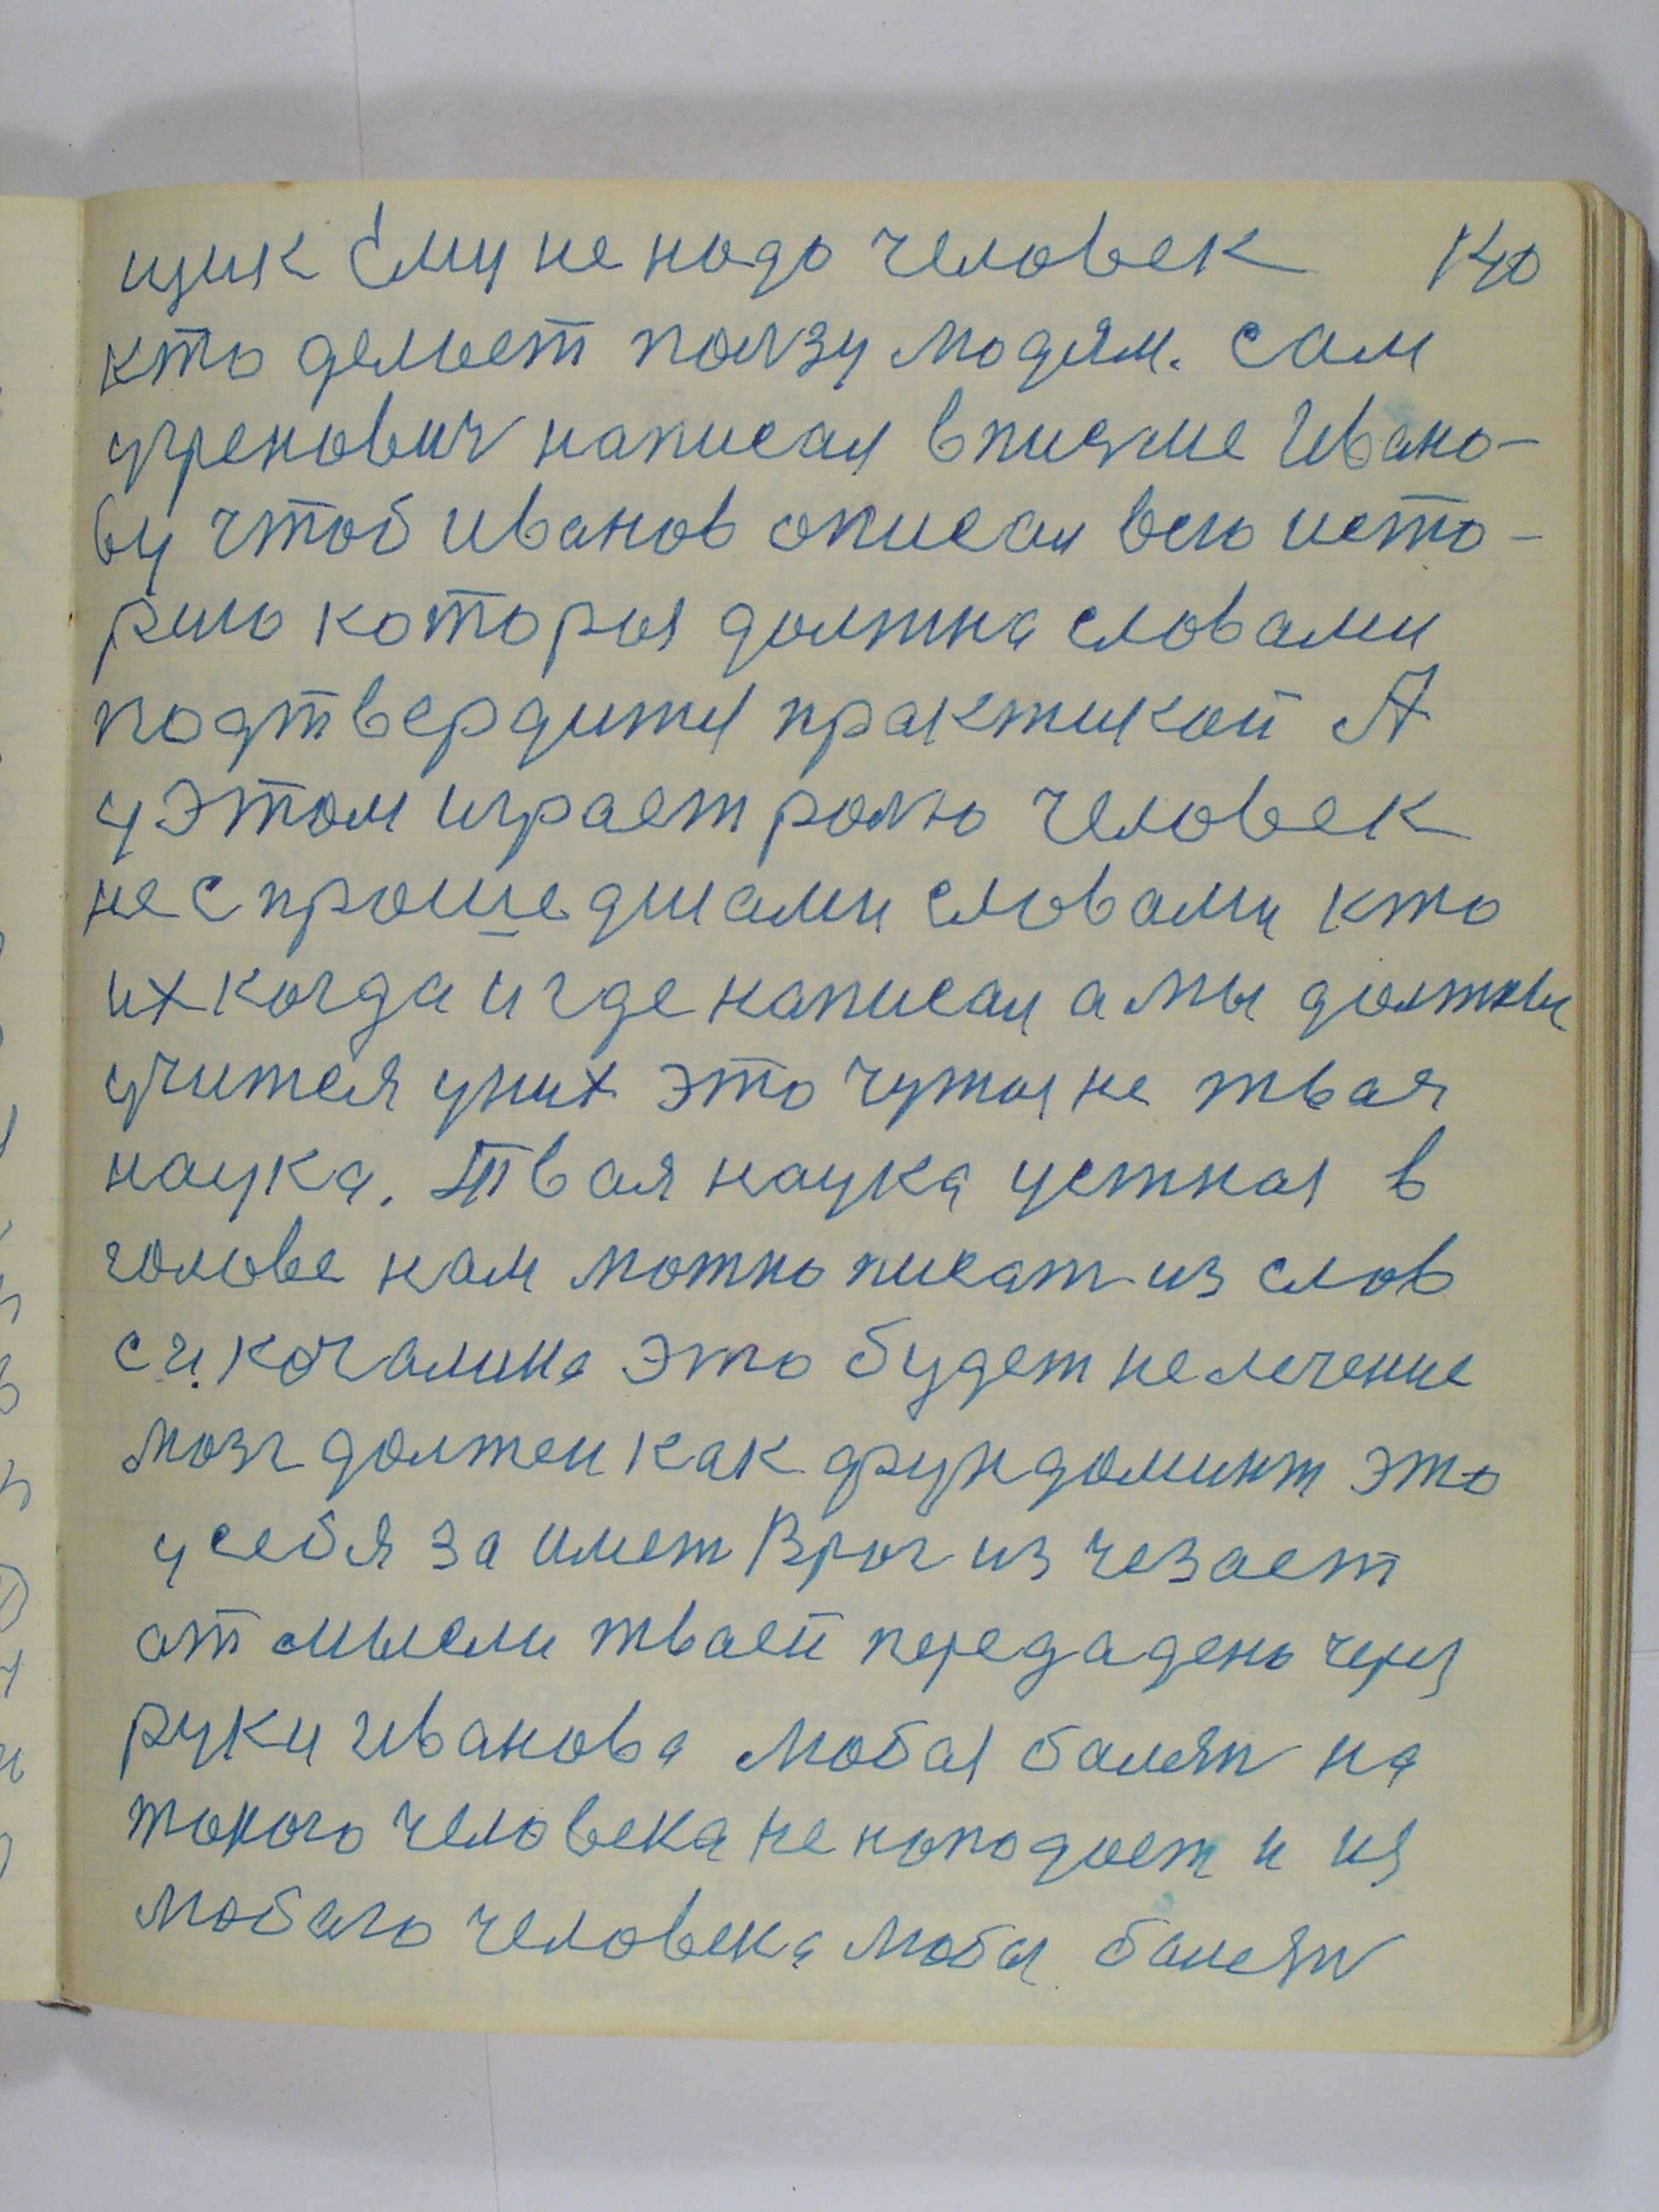 щик Ему не надо человек 140
кто делает ползу людям. сам
угренович написал в писме Ивано-
ву чтоб иванов описал всю исто-
рию которая должна словами
подтвердится практикой А
у этом играет ролю человек
не с прошедшами словами кто
их когда и где написал а мы должны
учится у них это чужая не твая
наука. Твая наука устная в
голове нам можно писат из слов
с и. качалина это будет не лечение
мозг должен как фундоминт это
у себя за имет Враг из чезает
от мысли твaей переда дено через
руки иванова любая балезн на
такого человека не нападает и из
любого человека любая балезн